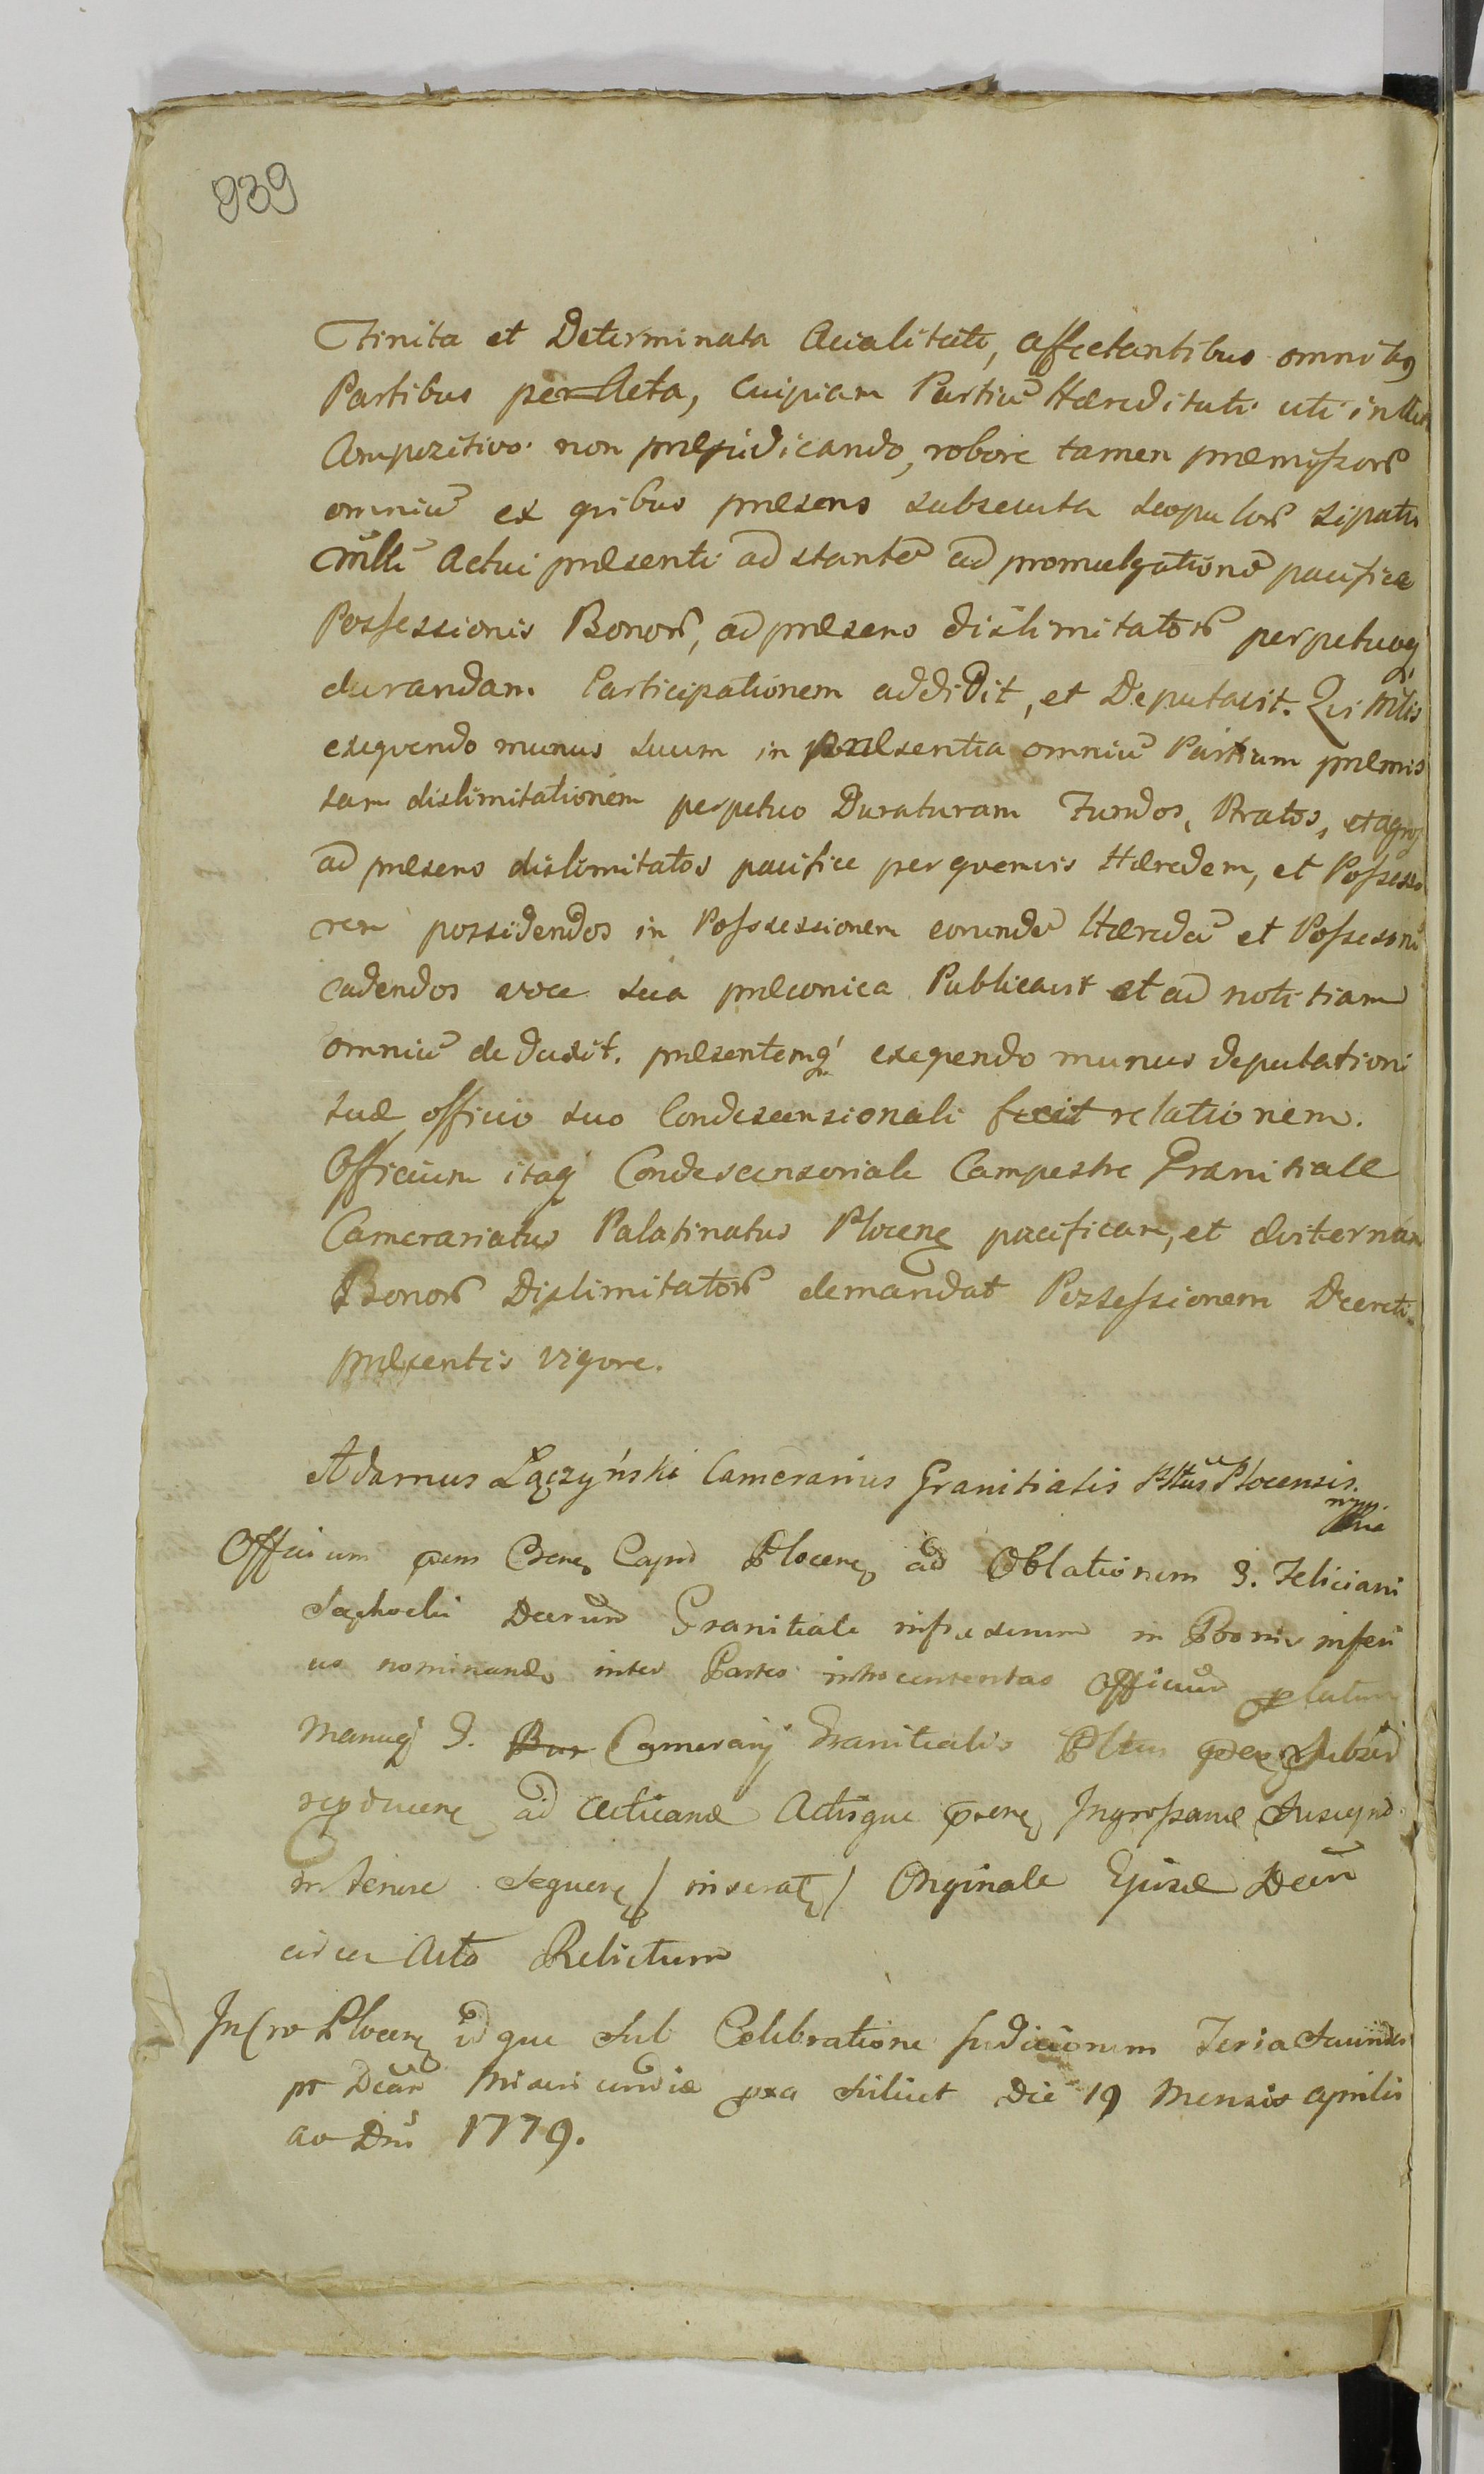 939
Finita et Determinata Acialitate, affectantibus omnibq
Partibus peracta, cuipiam Partiũ Hæreditati uti in
Compozitivo non præjudicando, robore tamen præmissorũ
omniũ ex quibus præsens subsecuta scopulorũ sipatio
Mlli Actui præsenti ad stantẽ ad promulgationẽ pacificæ
Possessionis Bonorũ, ad præsens dislimitatorũ perpetuoq
durandam Participationem addidit, et Deputavit. Qui Mlis
exequendo munus suum in præsentia omniũ Partium præmis
sam dislimitationem perpetuo Duraturam Fundos, Pratos, et agros
ad præsens dislimitatos pacifice per quemvis Hæredem, et Possesso
rem possidendos in Possessionem eorundẽ Hæredũ et Possesorũ
cadendos voce sua præconica Publicavit et ad notitiam
omniũ deduxit. præsentemq exequendo munus deputationi
suæ officio suo Condescensionali fecit relationem.
Officium itaq Condescensoriale Campestre Granitiale
Camerariatus Palatinatus Plocen pacificam, et æviternam
Bonorũ Dislimitatorũ demandat Possessionem Decreti
præsentis vigore.
Adamus Łączyński Camerarius Granitialis Pltus Plocensis
mpp
Officium psens Capt Plocen ad Oblationem G. Feliciani
Decrum Granitiale infrascrum in Bonis inferi
us nominand inter Partes introcontentas Officium
Manuq G. Bur Camerarij Granitialis Pltus Subscr
ad Acticand Actisque psen Ingrossand Suscepit
in tenore Sequen / inserat / Originale Ejusd Decr
circa Acta Relictum
In Cro Plocen idque sub Celebratione Judiciorum Feria Secunda
pt Dcam Misericordiæ pxa scilicet Die 19 Mensis Aprilis
Ao Dni 1779.